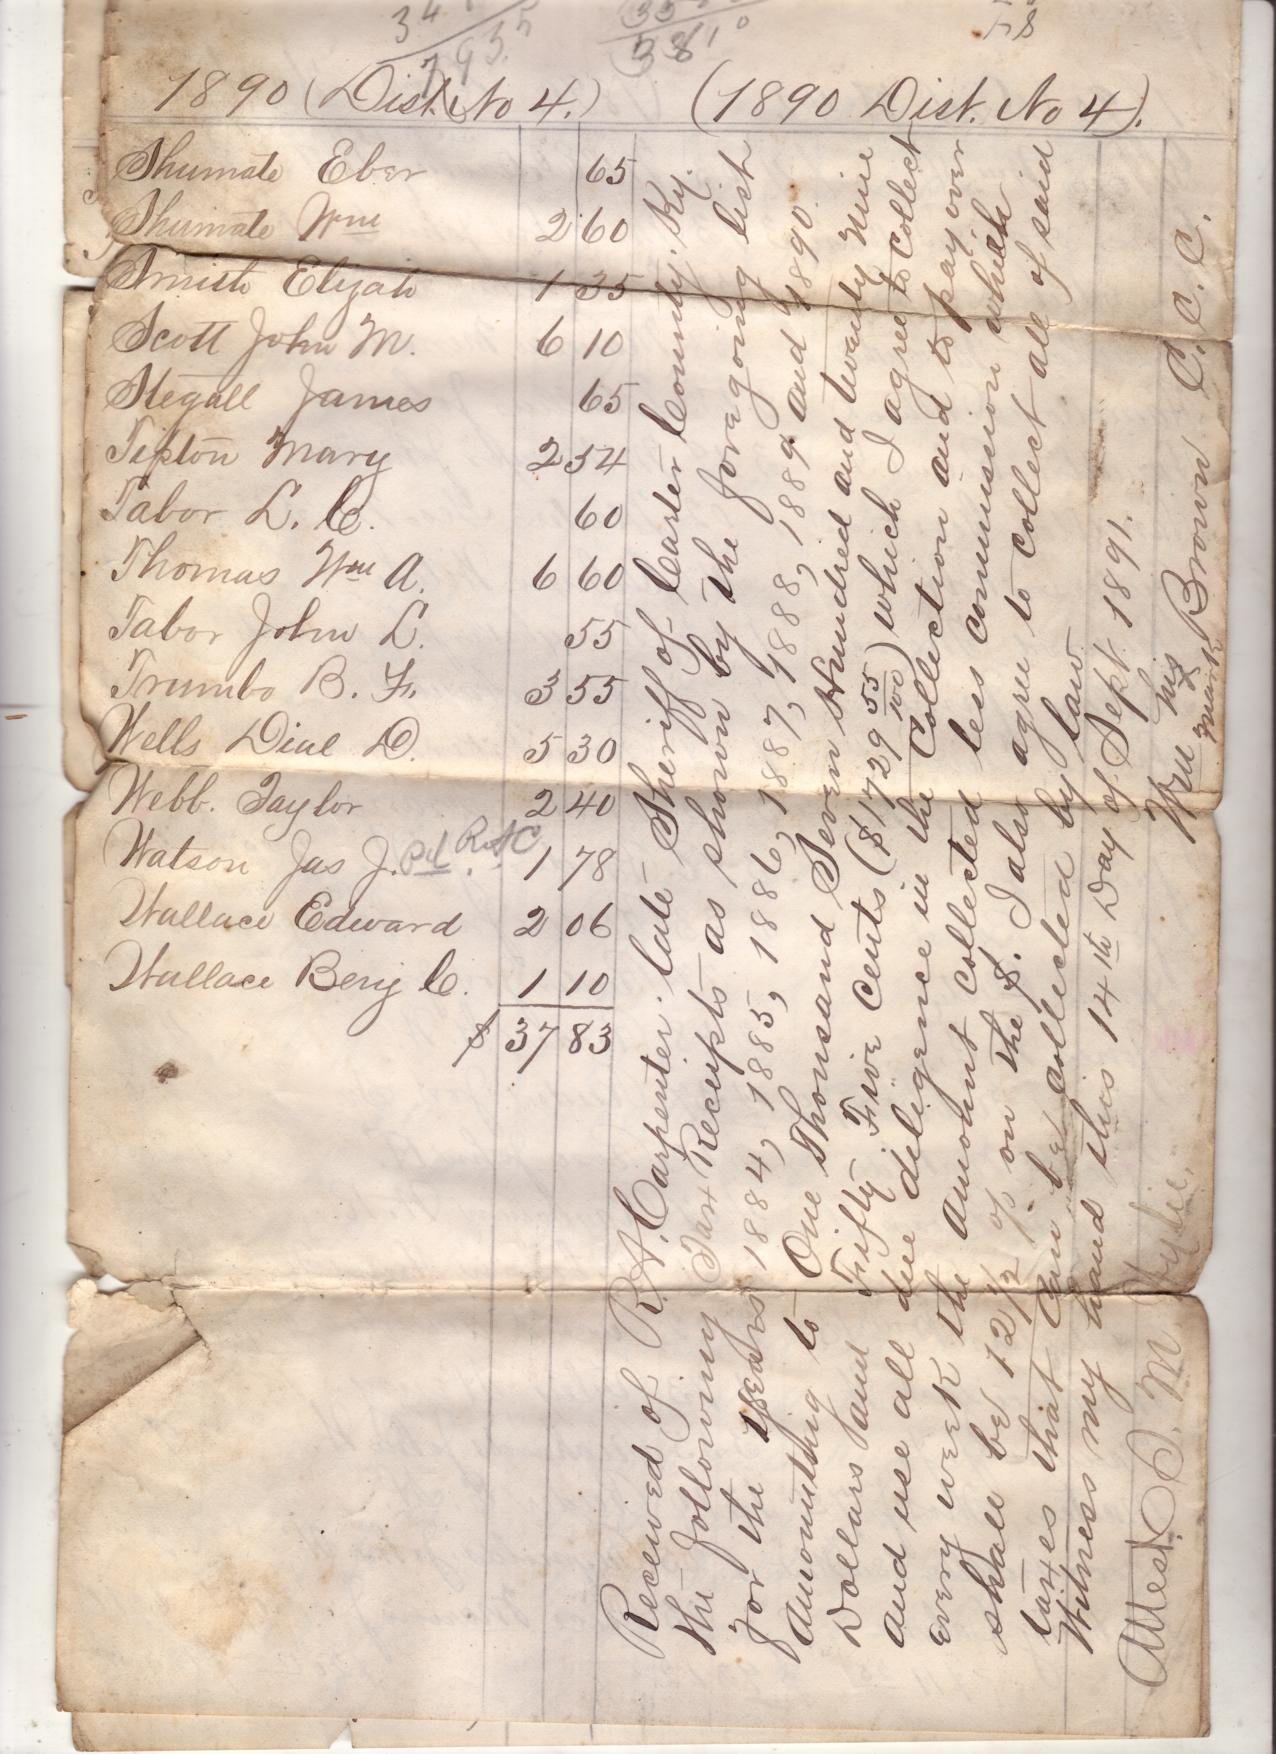 34
795.5
35
3810
F8
1890 (Dist. No 4.) (1890 Dist. No 4).
Shumate Eber 65
Shumate Wm 2 60
Smith Elijah 1 35
Scott John M. 6 10
Stegall James 65
Tipton Mary 2 54
Tabor L. C. 60
Thomas Wm A. 6 60
Tabor John L. 55
Trumbo B. F. 3 55
Wells Dial D. 5 30
Webb. Taylor 2 40
Watson Jas J. Pd. RAC 1 78
Wallace Edward 2 06
Wallace Benj C. 1 10
$ 37 83
Received of R. A. Carpenter. late Sheriff of Carter County. Ky.
the following Tax Receipts as shown by the foregoing list
for the years 1884, 1885, 1886, 1887, 1888, 1889 and 1890.
Amounting to One Thousand Seven Hundred and twenty Nine
Dollars and Fifty Five Cents ($1729 55/100) which I agree to collect
and use all due diligence in the Collection and to pay over
every week the amount collected less commission which
shall be 12 1/2 % on the $. I also agree to collect all of said
taxes that can be collected by law.
Witness my hand this 14th Day of Sept. 1891.
Wm his x mark Brown C. C. C.
Attest. J. M